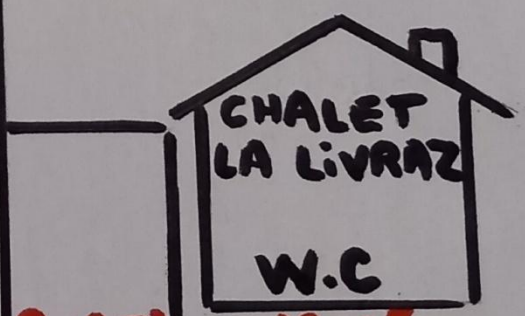 CHALET
LA LiVRAZ
W.C